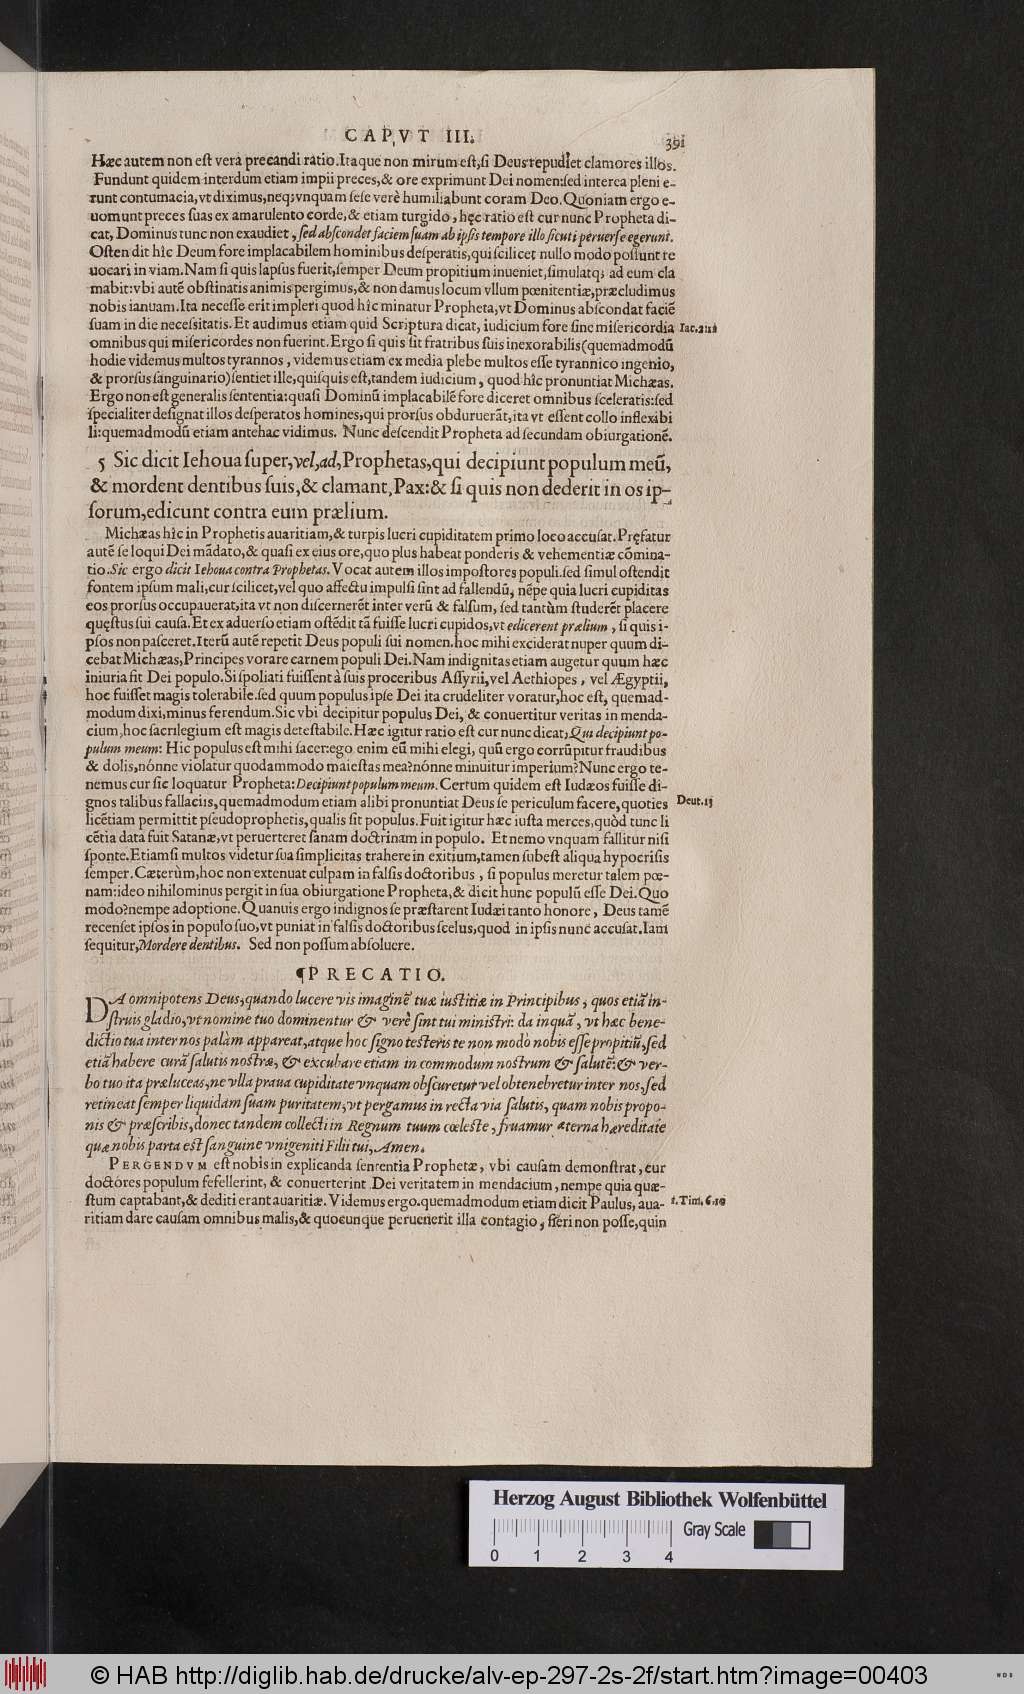 CAPVT III.
391
Hæc autem non eſt vera precandi ratio. Itaque non mirum eſt, ſi Deus repudiet clamores illos.
Fundunt quidem interdum etiam impii preces, & ore exprimunt Dei nomen: ſed interea pleni e-
runt contumacia, vt diximus, neq; vnquam ſeſe verè humiliabunt coram Deo. Quoniam ergo e-
uomunt preces ſuas ex amarulento corde, & etiam turgido, hęc ratio eſt cur nunc Propheta di-
cat, Dominus tunc non exaudiet, ſed abſcondet faciem ſuam ab ipſis tempore illo ſicuti peruerſe egerunt.
Oſten dit hîc Deum fore implacabilem hominibus deſperatis, qui ſcilicet nullo modo poſſunt re
uocari in viam. Nam ſi quis lapſus fuerit, ſemper Deum propitium inueniet, ſimulatq; ad eum cla
mabit: vbi autē obſtinatis animis pergimus, & non damus locum vllum pœnitentiæ, præcludimus
nobis ianuam. Ita neceſſe erit impleri quod hîc minatur Propheta, vt Dominus abſcondat faciē
ſuam in die neceſsitatis. Et audimus etiam quid Scriptura dicat, iudicium fore ſine miſericordia
Iac. 2.
omnibus qui miſericordes non fuerint. Ergo ſi quis ſit fratribus ſuis inexorabilis (quemadmodū
hodie videmus multos tyrannos, videmus etiam ex media plebe multos eſſe tyrannico ingenio,
& prorſus ſanguinario) ſentiet ille, quiſquis eſt, tandem iudicium, quod hîc pronuntiat Michæas.
Ergo non eſt generalis ſententia: quaſi Dominū implacabilē fore diceret omnibus ſceleratis: ſed
ſpecialiter deſignat illos deſperatos homines, qui prorſus obduruerāt, ita vt eſſent collo inflexibi
li: quemadmodū etiam antehac vidimus. Nunc deſcendit Propheta ad ſecundam obiurgationē.
5 Sic dicit Iehoua ſuper, vel, ad, Prophetas, qui decipiunt populum meū,
& mordent dentibus ſuis, & clamant, Pax: & ſi quis non dederit in os ip-
ſorum, edicunt contra eum prælium.
Michæas hîc in Prophetis auaritiam, & turpis lucri cupiditatem primo loco accuſat. Pręfatur
autē ſe loqui Dei mādato, & quaſi ex eius ore, quo plus habeat ponderis & vehementiæ cōmina-
tio. Sic ergo dicit Iehoua contra Prophetas. Vocat autem illos impoſtores populi. ſed ſimul oſtendit
fontem ipſum mali, cur ſcilicet, vel quo affectu impulſi ſint ad fallendū, nēpe quia lucri cupiditas
eos prorſus occupauerat, ita vt non diſcernerēt inter verū & falſum, ſed tantùm ſtuderēt placere
quęſtus ſui cauſa. Et ex aduerſo etiam oſtēdit tā fuiſſe lucri cupidos, vt edicerent prælium, ſi quis i-
pſos non paſceret. Iterū autē repetit Deus populi ſui nomen. hoc mihi exciderat nuper quum di-
cebat Michæas, Principes vorare carnem populi Dei. Nam indignitas etiam augetur quum hæc
iniuria fit Dei populo. Si ſpoliati fuiſſent à ſuis proceribus Aſſyrii, vel Aethiopes, vel Ægyptii,
hoc fuiſſet magis tolerabile. ſed quum populus ipſe Dei ita crudeliter voratur, hoc eſt, quemad-
modum dixi, minus ferendum. Sic vbi decipitur populus Dei, & conuertitur veritas in menda-
cium, hoc ſacrilegium eſt magis deteſtabile. Hæc igitur ratio eſt cur nunc dicat, Qui decipiunt po-
pulum meum: Hic populus eſt mihi ſacer: ego enim eū mihi elegi, quū ergo corrūpitur fraudibus
& dolis, nónne violatur quodammodo maieſtas mea? nónne minuitur imperium? Nunc ergo te-
nemus cur ſic loquatur Propheta: Decipiunt populum meum. Certum quidem eſt Iudæos fuiſſe di-
gnos talibus fallaciis, quemadmodum etiam alibi pronuntiat Deus ſe periculum facere, quoties
Deut. 13
licētiam permittit pſeudoprophetis, qualis ſit populus. Fuit igitur hæc iuſta merces, quòd tunc li
cētia data fuit Satanæ, vt peruerteret ſanam doctrinam in populo. Et nemo vnquam fallitur niſi
ſponte. Etiamſi multos videtur ſua ſimplicitas trahere in exitium, tamen ſubeſt aliqua hypocriſis
ſemper. Cæterùm, hoc non extenuat culpam in falſis doctoribus, ſi populus meretur talem pœ-
nam: ideo nihilominus pergit in ſua obiurgatione Propheta, & dicit hunc populū eſſe Dei. Quo
modo? nempe adoptione. Quanuis ergo indignos ſe præſtarent Iudæi tanto honore, Deus tamē
recenſet ipſos in populo ſuo, vt puniat in falſis doctoribus ſcelus, quod in ipſis nunc accuſat. Iam
ſequitur, Mordere dentibus. Sed non poſſum abſoluere.
¶PRECATIO.
DA omnipotens Deus, quando lucere vis imaginē tuæ iuſtitiæ in Principibus, quos etiā in-
ſtruis gladio, vt nomine tuo dominentur & verè ſint tui miniſtri: da inquā, vt hæc bene-
dictio tua inter nos palàm appareat, atque hoc ſigno teſteris te non modò nobis eſſe propitiū, ſed
etiā habere curā ſalutis noſtræ, & excubare etiam in commodum noſtrum & ſalutē: & ver-
bo tuo ita præluceas, ne vlla praua cupiditate vnquam obſcuretur vel obtenebretur inter nos, ſed
retineat ſemper liquidam ſuam puritatem, vt pergamus in recta via ſalutis, quam nobis propo-
nis & præſcribis, donec tandem collecti in Regnum tuum cœleſte, fruamur æterna hæreditate
quæ nobis parta eſt ſanguine vnigeniti Filii tui, Amen.
PERGENDVM eſt nobis in explicanda ſententia Prophetæ, vbi cauſam demonſtrat, cur
doctores populum fefellerint, & conuerterint Dei veritatem in mendacium, nempe quia quæ-
ſtum captabant, & dediti erant auaritiæ. Videmus ergo. quemadmodum etiam dicit Paulus, aua-
1. Tim. 6. 10
ritiam dare cauſam omnibus malis, & quocunque peruenerit illa contagio, fieri non poſſe, quin
Herzog August Bibliothek Wolfenbüttel
Gray Scale
0 1 2 3 4
© HAB http://diglib.hab.de/drucke/alv-ep-297-2s-2f/start.htm?image=00403